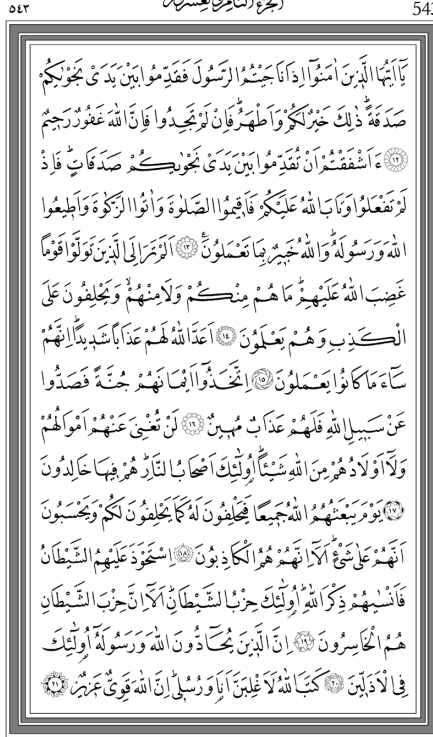 ٥٤٣ الجزء الثامن والعشرون 543
يَٓا اَيُّهَا الَّذ۪ينَ اٰمَنُٓوا اِذَا نَاجَيْتُمُ الرَّسُولَ فَقَدِّمُوا بَيْنَ يَدَيْ نَجْوٰيكُمْ
صَدَقَةًۜ ذٰلِكَ خَيْرٌ لَكُمْ وَاَطْهَرُۜ فَاِنْ لَمْ تَجِدُوا فَاِنَّ اللّٰهَ غَفُورٌ رَح۪يمٌ
﴿١٢﴾ ءَاَشْفَقْتُمْ اَنْ تُقَدِّمُوا بَيْنَ يَدَيْ نَجْوٰيكُمْ صَدَقَاتٍۜ فَاِذْ
لَمْ تَفْعَلُوا وَتَابَ اللّٰهُ عَلَيْكُمْ فَاَق۪يمُوا الصَّلٰوةَ وَاٰتُوا الزَّكٰوةَ وَاَط۪يعُوا
اللّٰهَ وَرَسُولَهُۜ وَاللّٰهُ خَب۪يرٌ بِمَا تَعْمَلُونَ۟ ﴿١٣﴾ اَلَمْ تَرَ اِلَى الَّذ۪ينَ تَوَلَّوْا قَوْمًا
غَضِبَ اللّٰهُ عَلَيْهِمْۜ مَا هُمْ مِنْكُمْ وَلَا مِنْهُمْۙ وَيَحْلِفُونَ عَلَى
الْكَذِبِ وَهُمْ يَعْلَمُونَ ﴿١٤﴾ اَعَدَّ اللّٰهُ لَهُمْ عَذَابًا شَد۪يدًاۜ اِنَّهُمْ
سَٓاءَ مَا كَانُوا يَعْمَلُونَ ﴿١٥﴾ اِتَّخَذُٓوا اَيْمَانَهُمْ جُنَّةً فَصَدُّوا
عَنْ سَب۪يلِ اللّٰهِ فَلَهُمْ عَذَابٌ مُه۪ينٌ ﴿١٦﴾ لَنْ تُغْنِيَ عَنْهُمْ اَمْوَالُهُمْ
وَلَٓا اَوْلَادُهُمْ مِنَ اللّٰهِ شَيْـًٔاۜ اُو۬لٰٓئِكَ اَصْحَابُ النَّارِۜ هُمْ ف۪يهَا خَالِدُونَ
﴿١٧﴾ يَوْمَ يَبْعَثُهُمُ اللّٰهُ جَم۪يعًا فَيَحْلِفُونَ لَهُ كَمَا يَحْلِفُونَ لَكُمْ وَيَحْسَبُونَ
اَنَّهُمْ عَلٰى شَيْءٍۜ اَلَٓا اِنَّهُمْ هُمُ الْكَاذِبُونَ ﴿١٨﴾ اِسْتَحْوَذَ عَلَيْهِمُ الشَّيْطَانُ
فَاَنْسٰيهُمْ ذِكْرَ اللّٰهِۜ اُو۬لٰٓئِكَ حِزْبُ الشَّيْطَانِۜ اَلَٓا اِنَّ حِزْبَ الشَّيْطَانِ
هُمُ الْخَاسِرُونَ ﴿١٩﴾ اِنَّ الَّذ۪ينَ يُحَٓادُّونَ اللّٰهَ وَرَسُولَهُٓ اُو۬لٰٓئِكَ
فِي الْاَذَلّ۪ينَ ﴿٢٠﴾ كَتَبَ اللّٰهُ لَاَغْلِبَنَّ اَنَا۬ وَرُسُل۪يۜ اِنَّ اللّٰهَ قَوِيٌّ عَز۪يزٌ ﴿٢١﴾